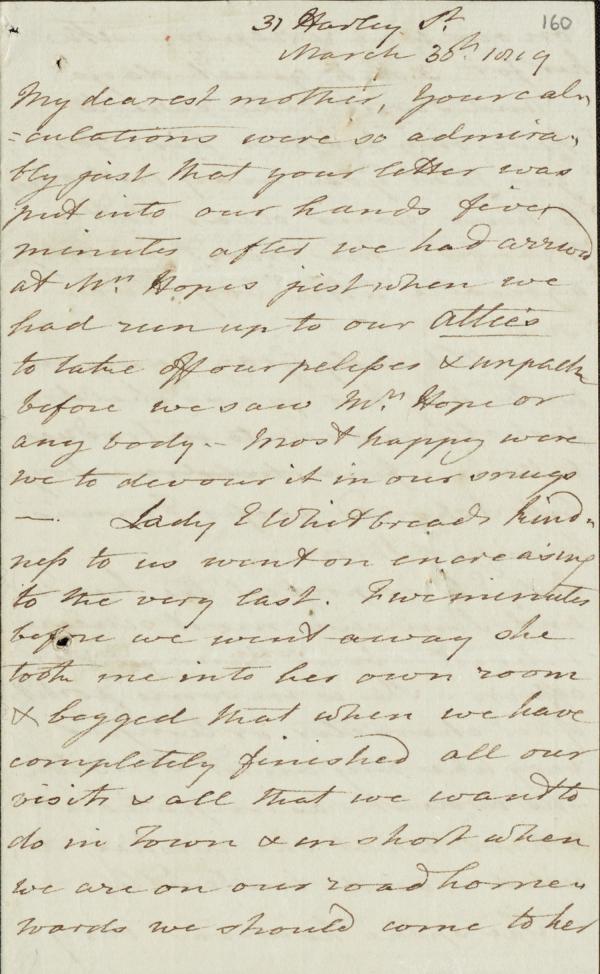 31 Harley St. 160
March 30th 1819
My dearest mother, Your cal-
=culations were so admira-
bly just that your letter was
put into our hands five
minutes after we had arrived
at Mrs Hopes just when we
had run up to our Attics
to take off our pelisses & unpack
before we saw Mrs Hope or
any body – Most happy were
we to devour it in our snugs
—. Lady E Whitbreads kind-
ness to us went on encreasing
to the very last. Five minutes
before we went away she
took me into her own room
& begged that when we have
completely finished all our
visits & all that we want to
do in Town & in short when
we are on our road home-
wards we should come to her